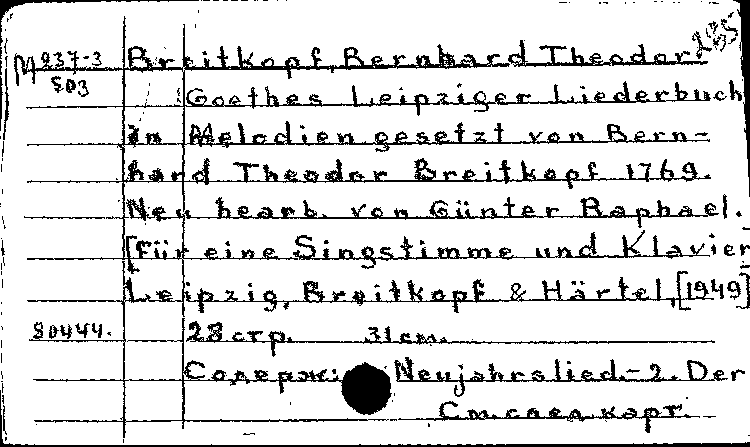 М 937-3 Breitkopf, Bernhard Theodor. 285
503 Goethes Leipziger Liederbuch
in Melodien gesetzt von Bern-
hard Theodor Breitkopf 1769.
Neu bearb. von Günter Raphael.
[Für eine Singstimme und Klavier
Leipzig, Breitkopf & Härtel, [1949]
80444. 28 стр. 31 см.
Содерж: Neujahrslied.-2. Der
См. след. карт.